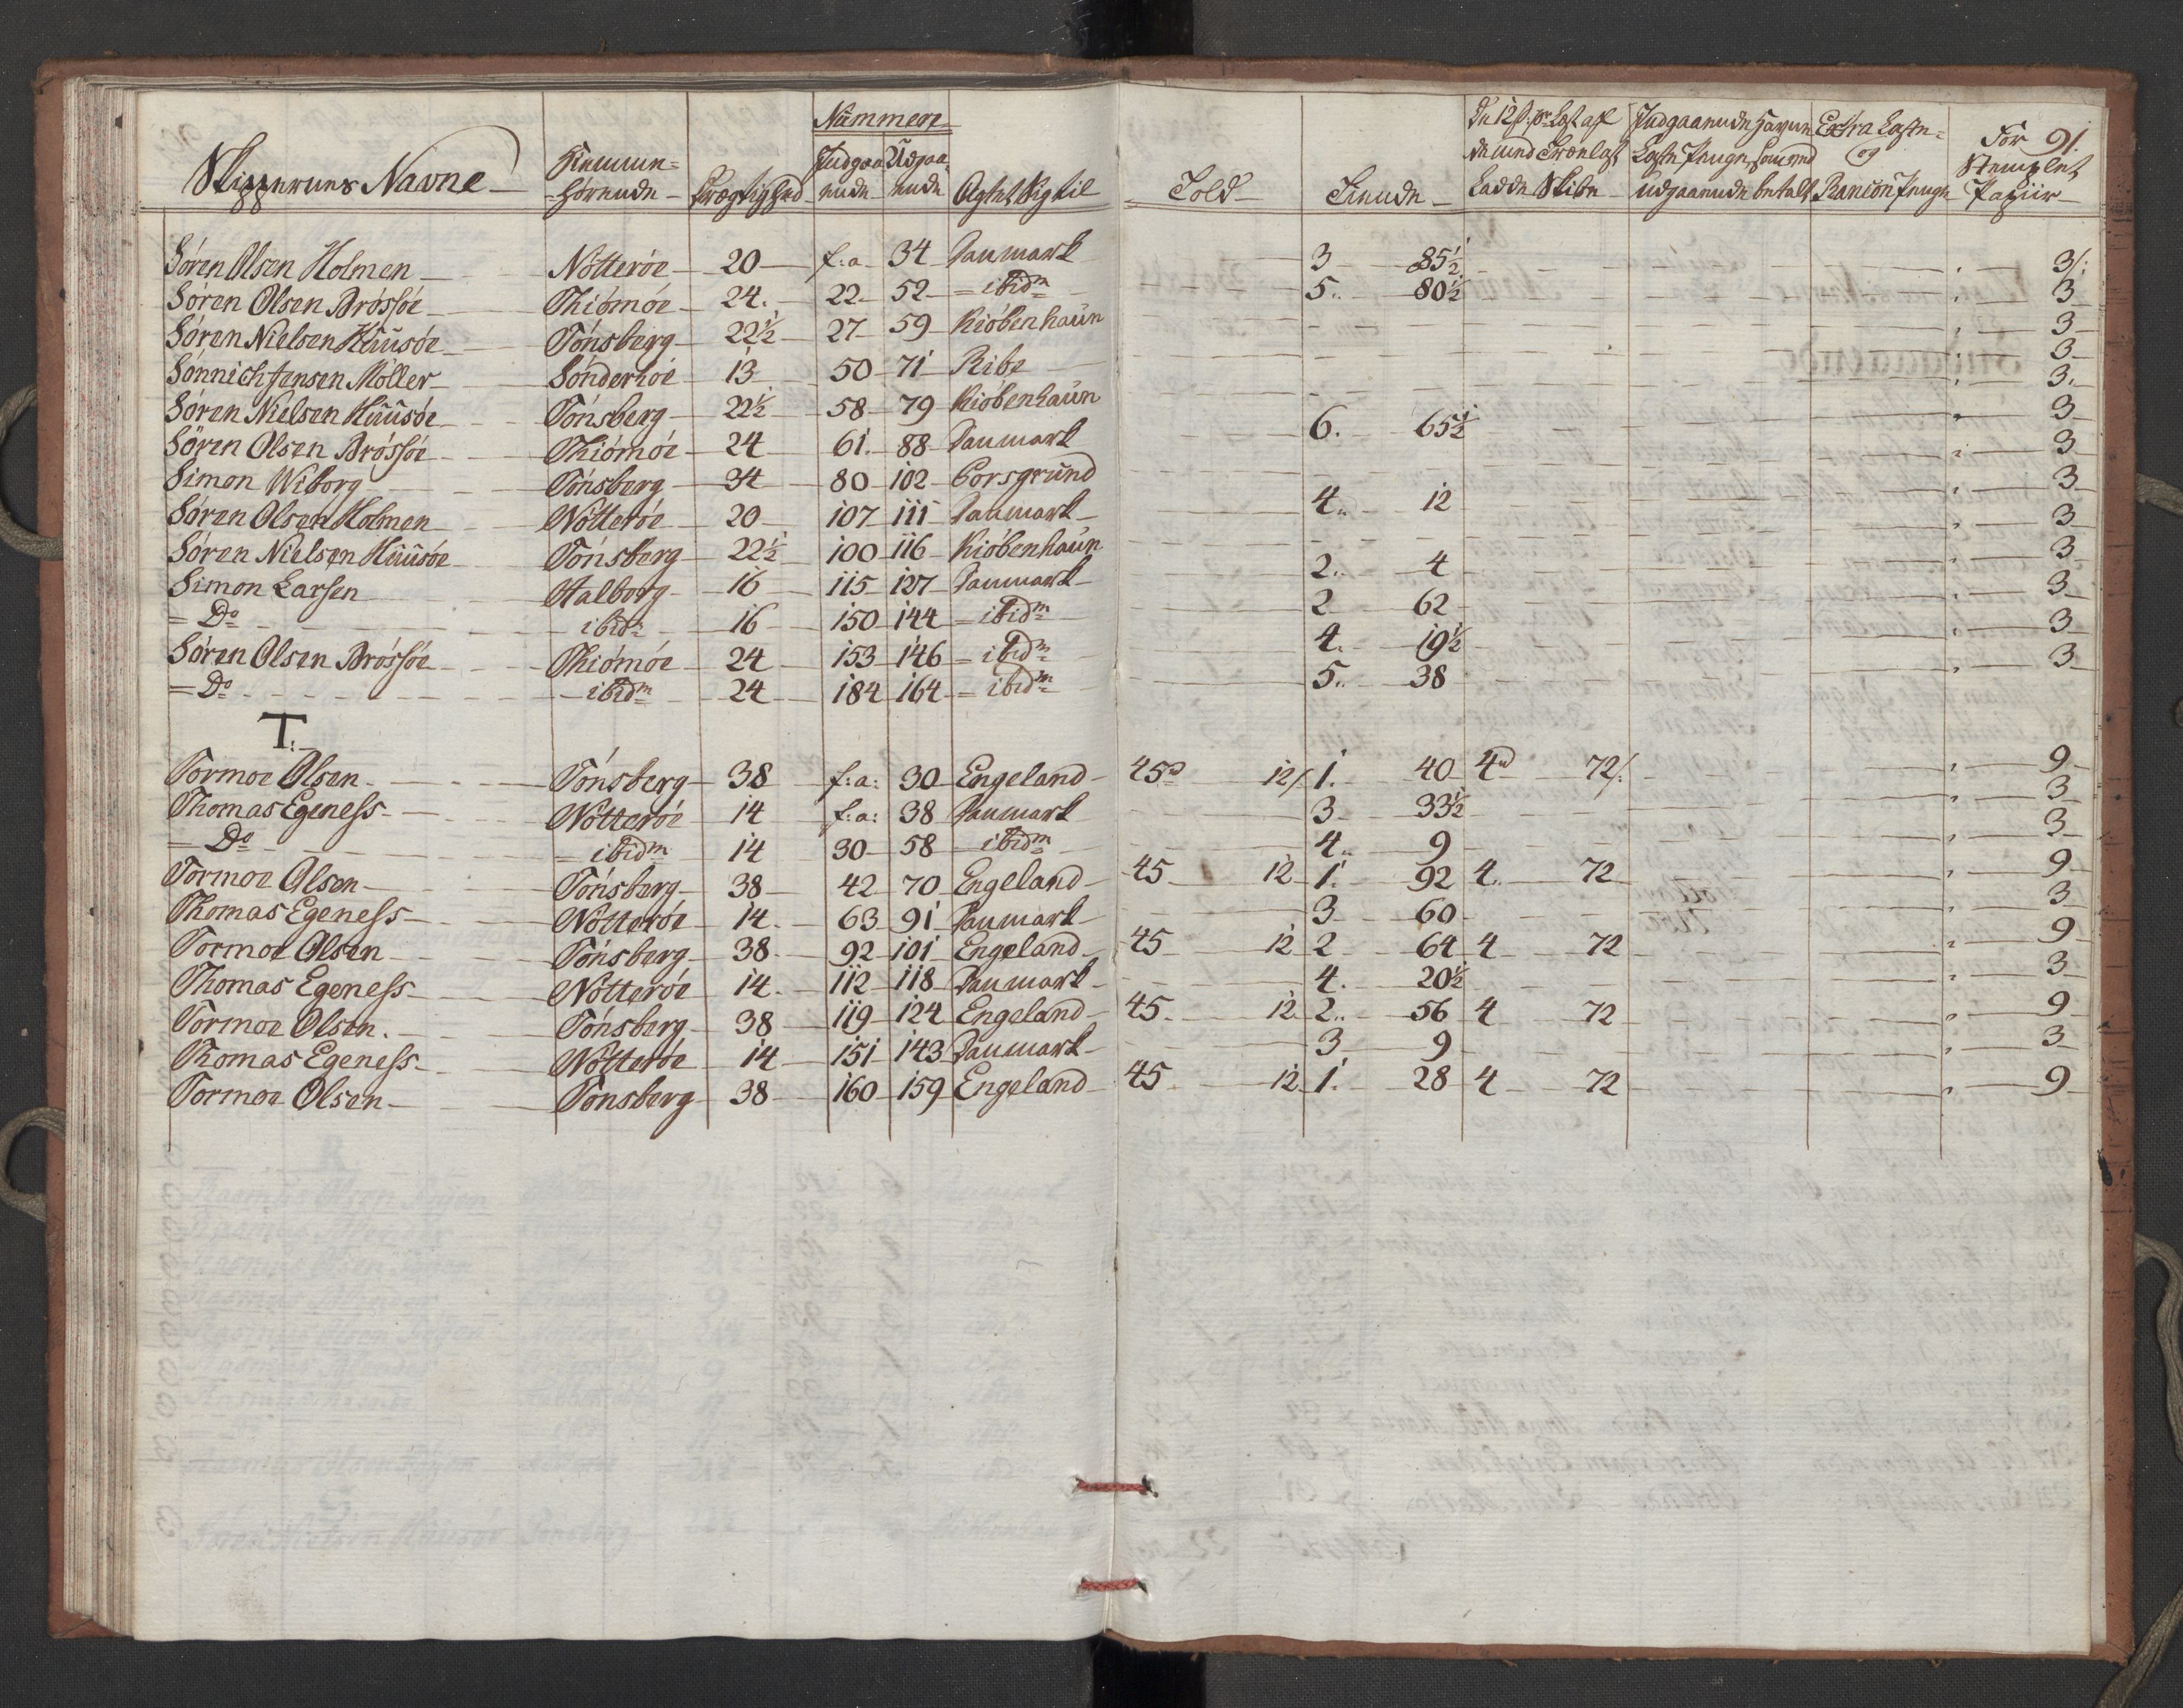 Nummere 91
Skippernes Navne Hiemme-hørende Drægtighed Indgaaende Udgaaende Agtet sig til Told Kiende De 12 s. pr Læst af de med Trælast Ladde Skibe Indgaaende Havne Laste Penge, som ved udgaaende betalt Extra Laste- og Rancon Penge For Stemplet Papiir
Søren Olsen Holmen Nötteröe 20 f:a 34 Danmark 3 85½ 3/:
Søren Olsen Brósóe Thiómóe 24. 22 52 ibidm 5. 80½ 3
Søren Nielsen Húúsóe Tónsberg 22½ 27 59 Kióbenhaün 3
Sónnich Jensen Móller Sónderhóe 13 50 71 Ribe 3
Sóren Nielsen Húúsóe Tónsberg 22½ 58 79 Kióbenhaün 3.
Søren Olsen Brósóe Thiómóe 24 61. 88 Danmark 6. 65½ 3
Simon Wiborg Tónsberg 34 80 102 Porsgrund 3
Søren Olsen Holmen Nötteróe 20 107 111 Danmark 4. 12 3
Søren Nielsen Húúsóe Tónsberg 22½ 100 116 Kióbenhaün 3
Simon Larsen Aalborg 16 115 127 Danmark 2. 4 3
= Do ibidm 16 150 144 ibidm 2 62 3
Søren Olsen Brósóe Thiómóe 24 153 146 ibidm 4. 19½ 3
= Do ibidm 24 184 164 ibidm 5. 38 3
T:
Tormoe Olsen Tónsberg 38 f:a: 30 Engeland 45 12/ 1. 40 4 72/: 9
Thomas Egeness Nötteróe 14 f:a: 38 Danmark 3 33½ 3
= Do ibidm 14 30 58 ibidm 4. 9 3
Tormoe Olsen Tónsberg 38 42 70 Engeland 45 12 1. 92 4. 72 9
Thomas Egeness Nötteróe 14. 63 91 Danmark 3 60 3
Tormoe Olsen Tónsberg 38 92 101 Engeland 45 12 2 64 4 72 9
Thomas Egeness Nötteróe 14. 112 118 Danmark 4. 20½ 3
Tormoe Olsen. Tónsberg 38 119 124 Engeland 45. 12 2. 56 4 72 9
Thomas Egeness Nötteróe 14 151 143 Danmark 3 9 3
Tormoe Olsen Tónsberg 38 160 159 Engeland 45 12 1. 28 4 72 9